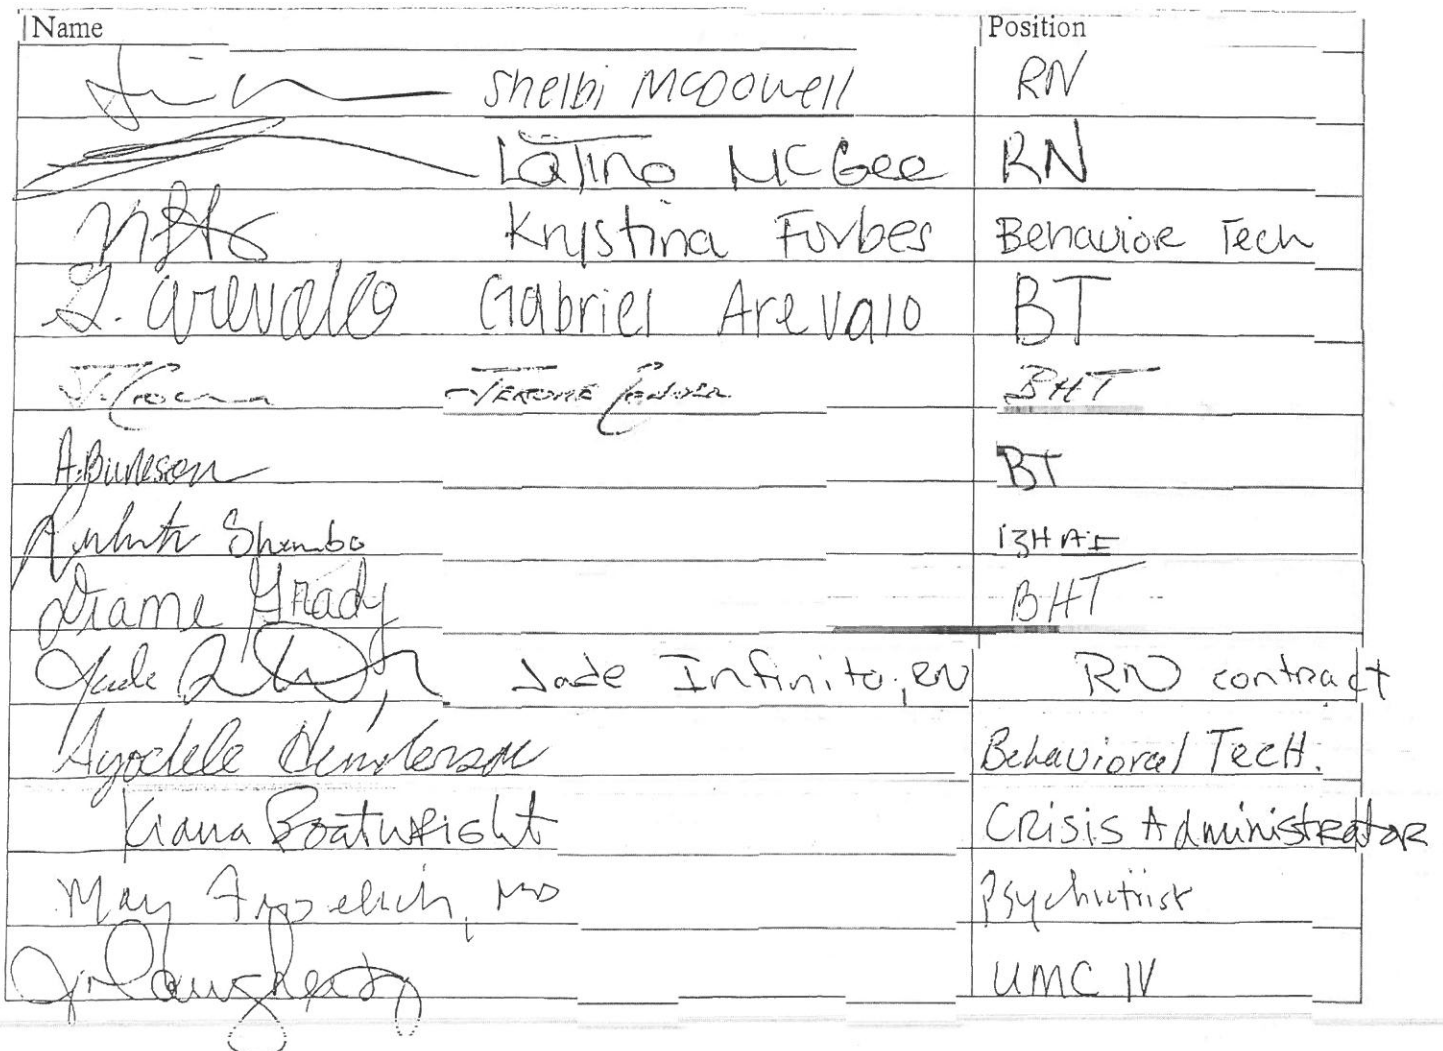 Name Position
Shelbi McDowell RN
LaTino McGee RN
Krystina Forbes Behavior Tech
G. Arevalo Gabriel Arevalo BT
Jerome BHT
BT
Shembo
Diame Grady BHT
Jade Jade Infinito, RN RN contract
Ayodele Henderson Behavioral TecH.
Kiana BoatwRight CRisis AdministRatoR
May MD Psychiatrist
UMC IV